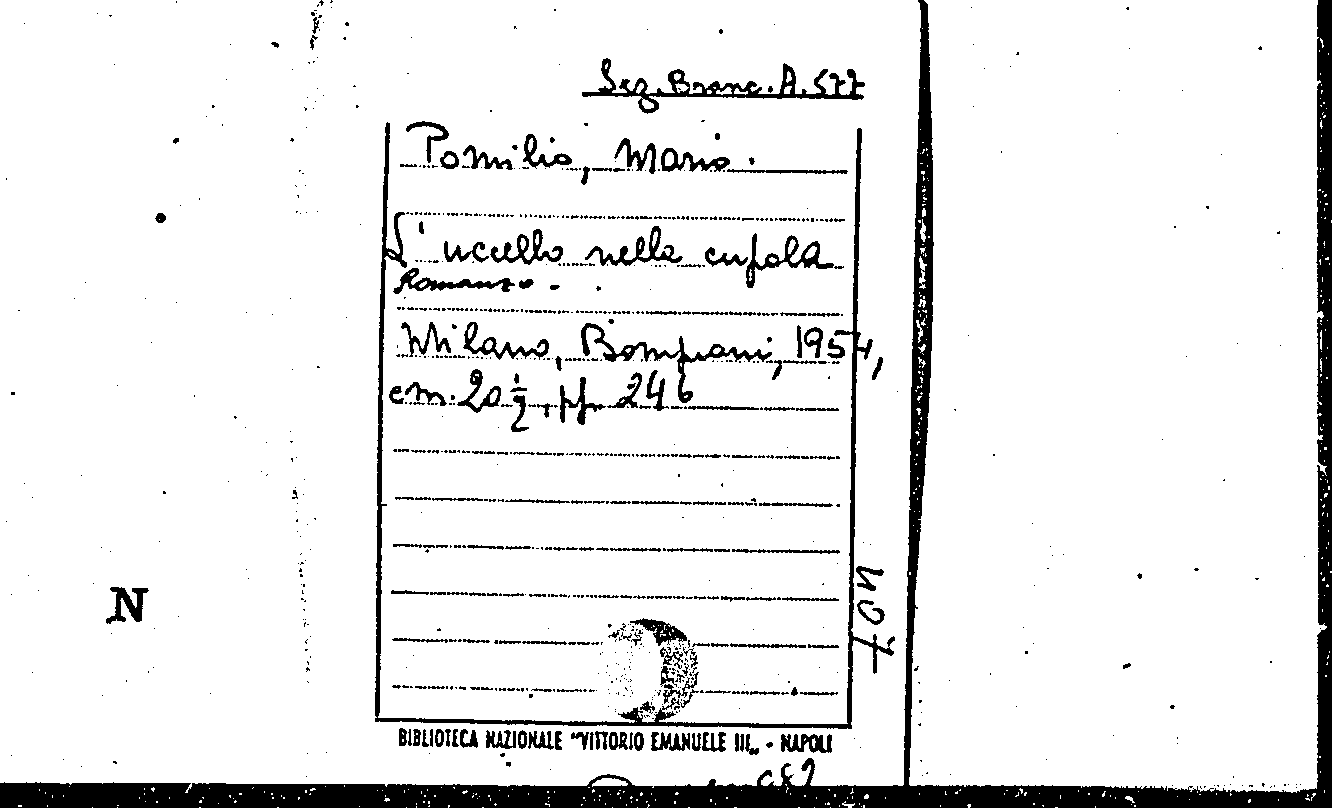 Sez. Branc. A. 577
Pomilio, Mario.
L'uccello nella cupola
Romanzo.
Milano, Bompiani, 1954,
cm. 20 1/2, pp. 246
407
N
BIBLIOTECA NAZIONALE "VITTORIO EMANUELE III„ - NAPOLI